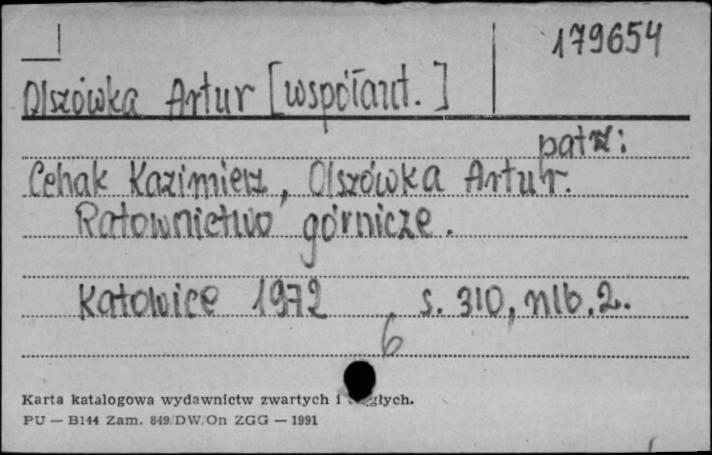 179654
Olszówka Artur [współaut.]
patrz:
Cehak Kazimierz, Olszówka Artur.
Ratownictwo górnicze.
Katowice 1972 s. 310, nlb. 2.
6
Karta katalogowa wydawnictw zwartych i
PU — B144 Zam. 849/DW/On ZGG — 1991